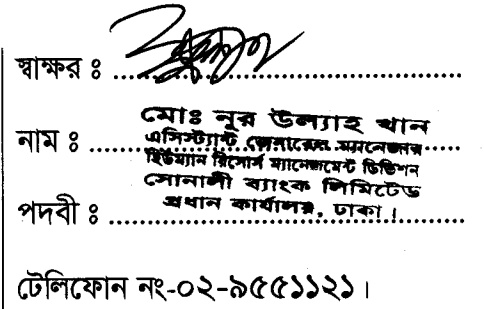 স্বাক্ষর ঃ
মোঃ নুর উল্যাহ খান
নাম ঃ এসিস্ট্যান্ট জেনারেল ম্যানেজার
হিউম্যান রিসোর্স ম্যানেজমেন্ট ডিভিশন
সোনালী ব্যাংক লিমিটেড
পদবী ঃ প্রধান কার্যালয়, ঢাকা।
টেলিফোন নং-০২-৯৫৫১১২১।